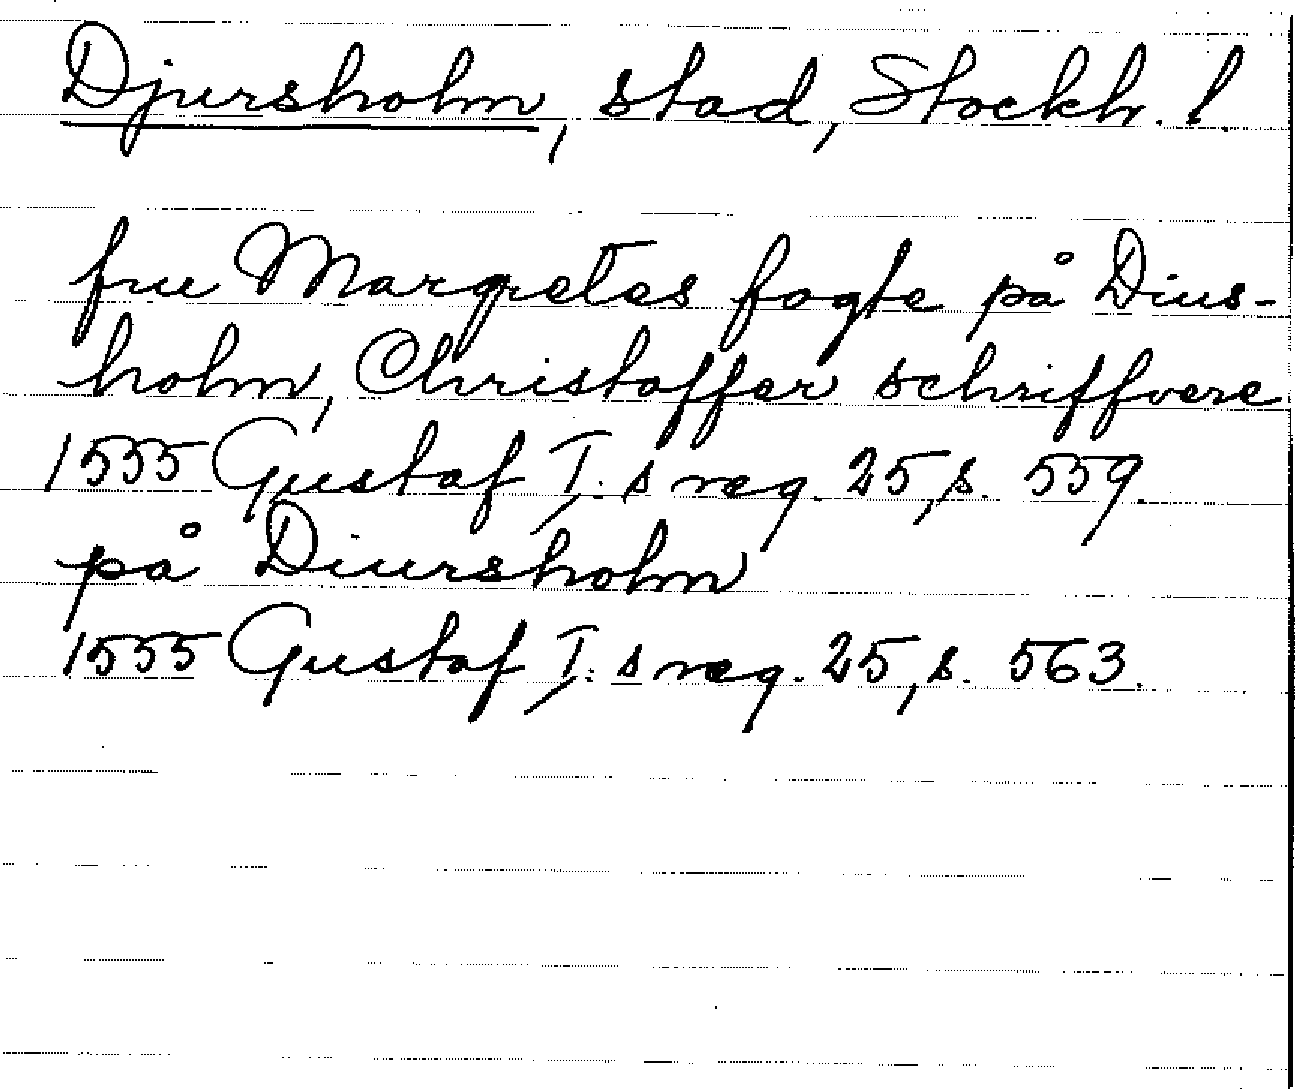 Djursholm, stad, Stockh. l.
frue Margretes fogte på Dius-
holm, Christoffer schriffvere
1555 Gustaf I:s reg. 25, s. 559.
på Diursholm
1555 Gustaf I:s reg. 25, s. 563.